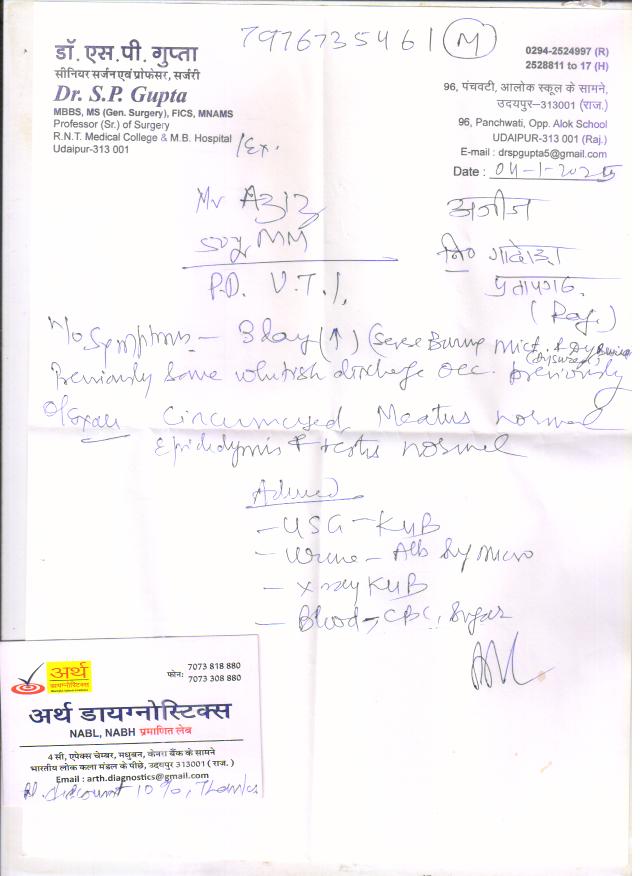 7976735461 (M)
डॉ. एस.पी. गुप्ता
सीनियर सर्जन एवं प्रोफेसर, सर्जरी
Dr. S.P. Gupta
MBBS, MS (Gen. Surgery), FICS, MNAMS
Professor (Sr.) of Surgery
R.N.T. Medical College & M.B. Hospital
Udaipur-313 001
/Ex.
0294-2524997 (R)
2528811 to 17 (H)
96, पंचवटी, आलोक स्कूल के सामने,
उदयपुर–313001 (राज.)
96, Panchwati, Opp. Alok School
UDAIPUR-313 001 (Raj.)
E-mail : drspgupta5@gmail.com
Date : 04-1-2025
Mr
अजीज
MM
नि०
P.D. U.T.I.
प्रतापगढ़
(Raj.)
Symptoms – 3 day (↑) (Severe Burning Mict. &
(dysurea)
Previously some whitish discharge occ. previously
O/Exam Circumcised, Meatus normal
Epididymis & testis normal
Advised
– USG – KUB
– Urine – Alb Sug Micro
– X ray KUB
– Blood → CBC, Sugar
अर्थ
डायग्नोस्टिक्स
फोन: 7073 818 880
7073 308 880
अर्थ डायग्नोस्टिक्स
NABL, NABH प्रमाणित लेब
4 सी, एपेक्स चेम्बर, मधुबन, केनरा बैंक के सामने
भारतीय लोक कला मंडल के पीछे, उदयपुर 313001 ( राज. )
Email : arth.diagnostics@gmail.com
Pl. discount 10%, Thanks